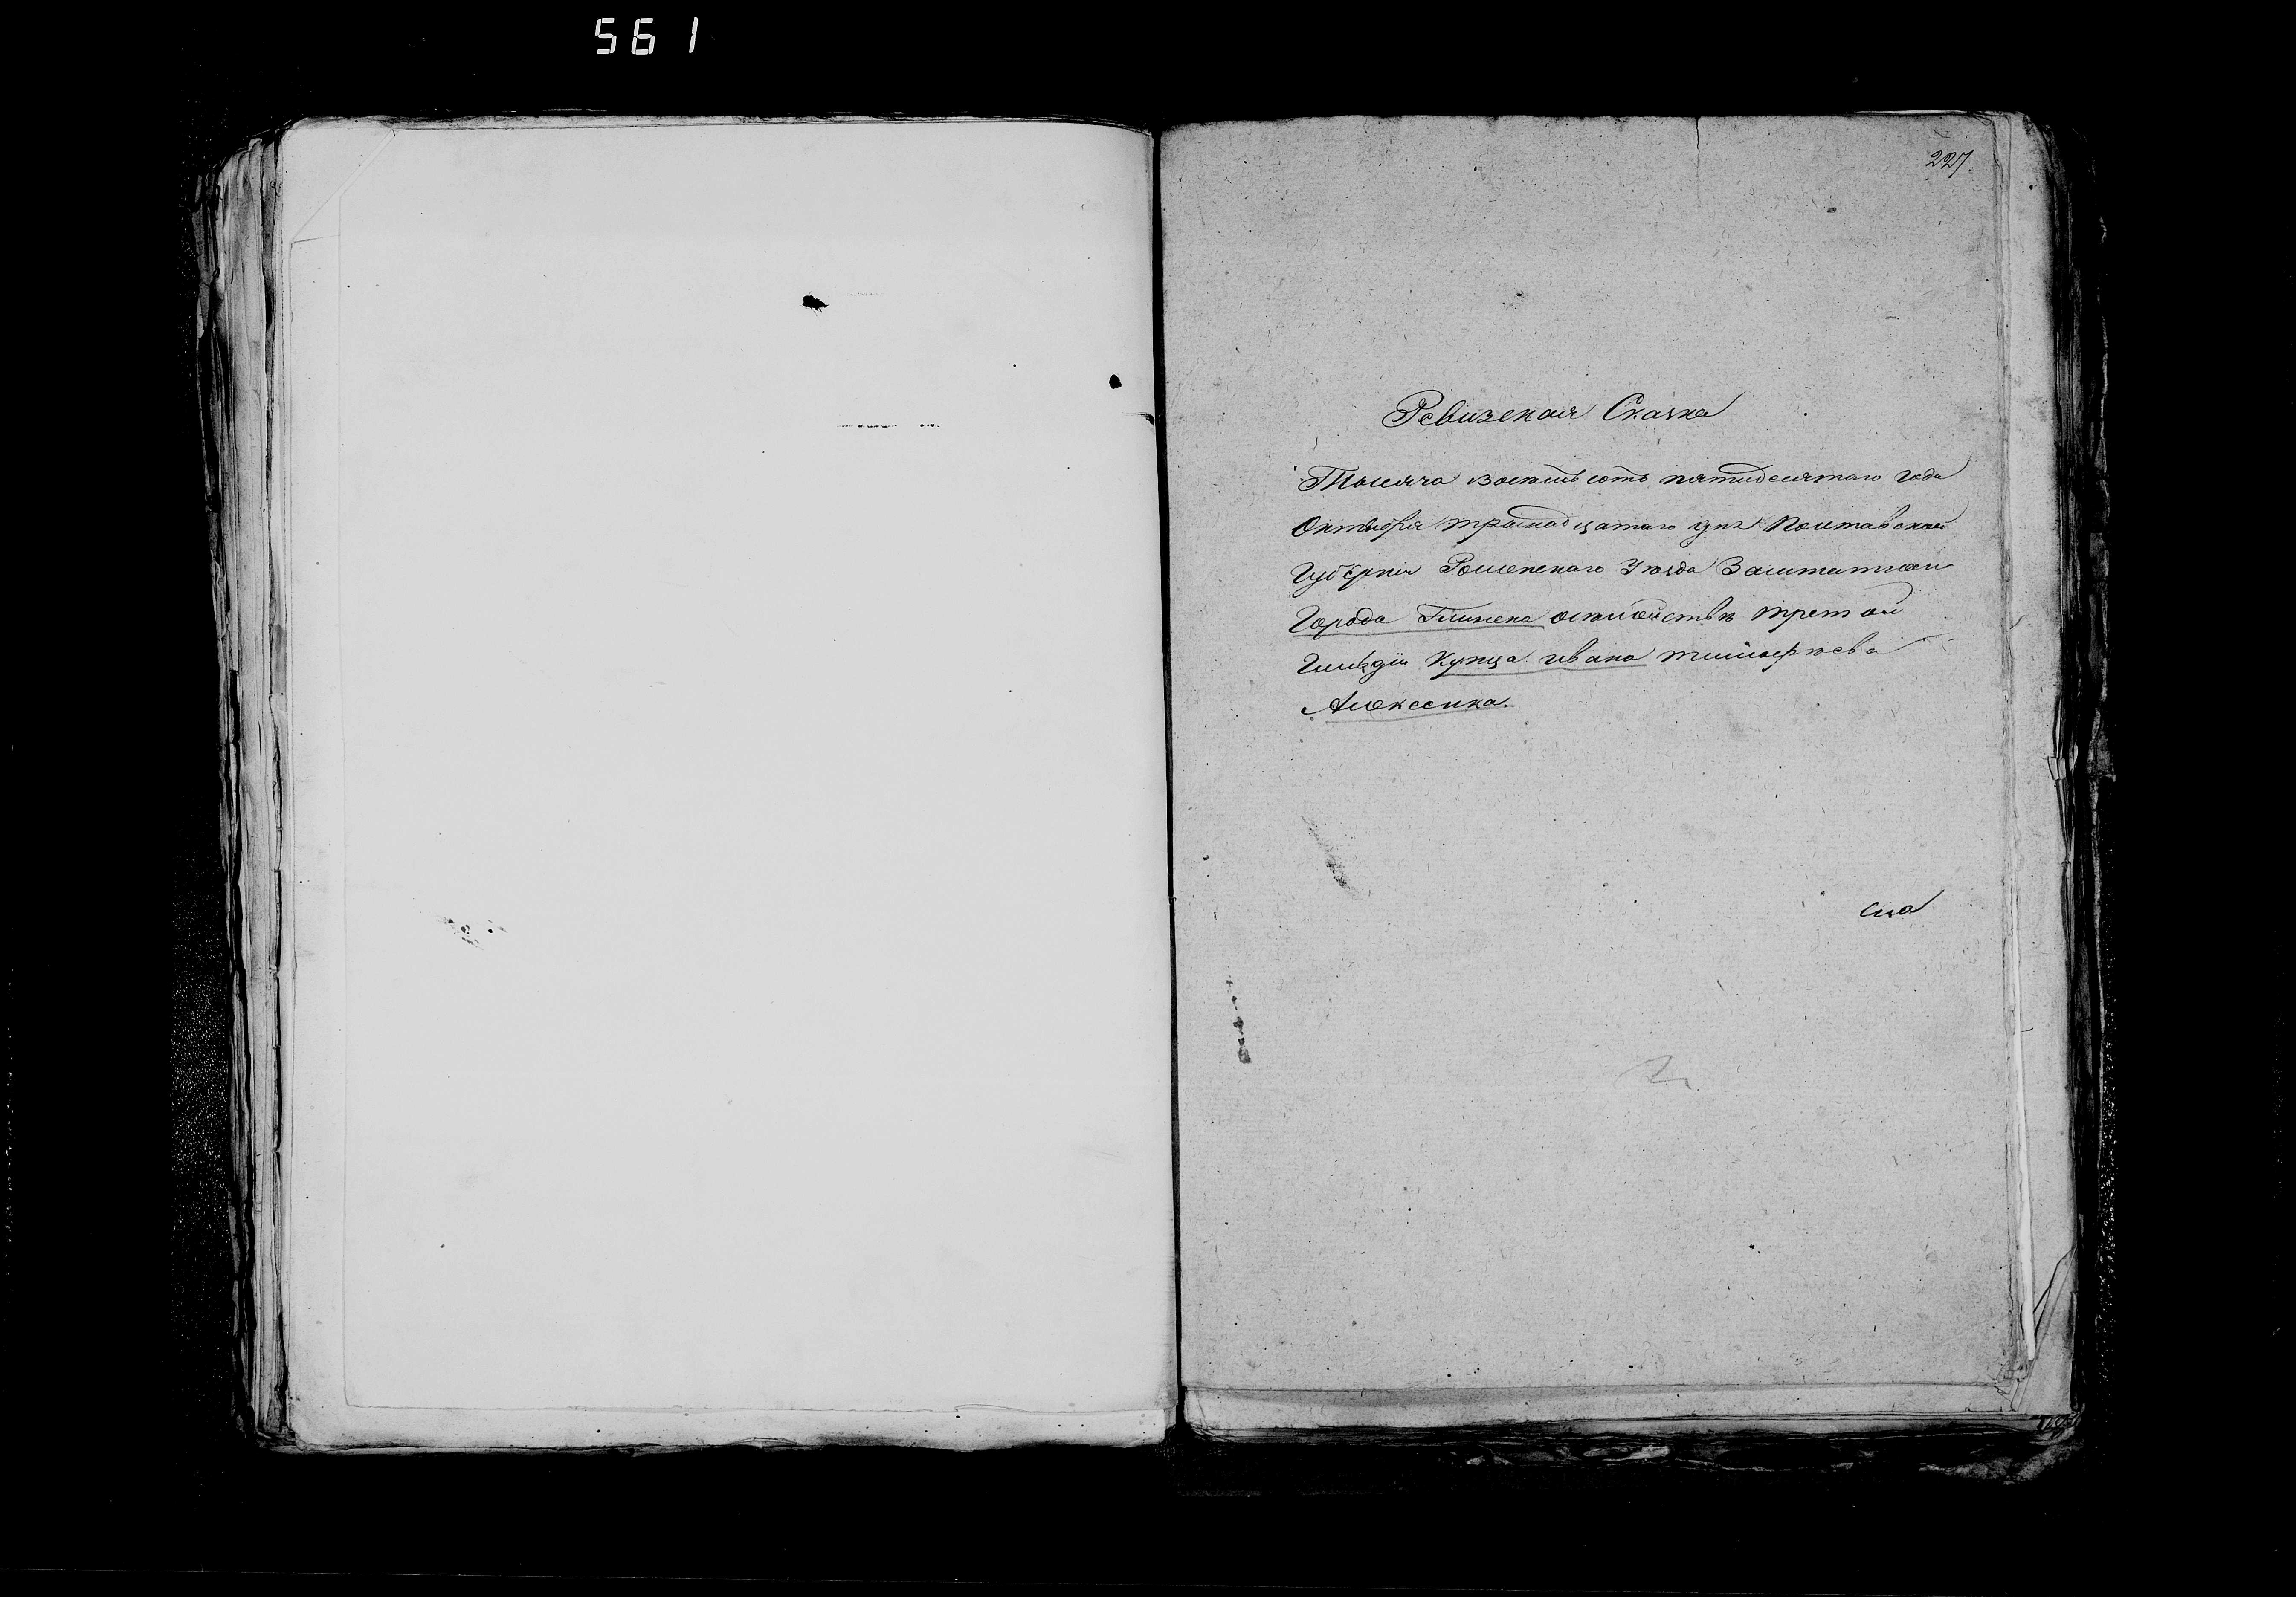 561
227
Ревизская Сказка
Тысяча восемьсотъ пятидесятаго года
Октября тринадцатаго дня Полтавской
Губерніи Роменскаго Уезда Заштатнаго
Города Глинска о третой
Гильдіи Купца ивана тимофеева
Алексенка.